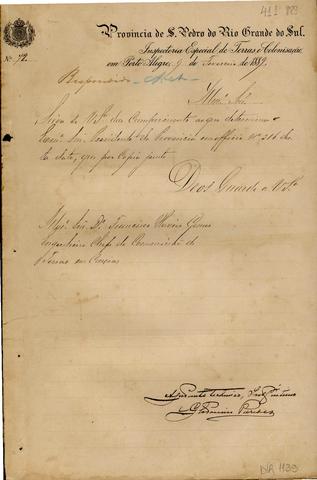 Provincia de S. Pedro do Rio Grande do Sul.
Inspectoria Especial de Terras e Colonisação
em Porto Alegre, 9 de Fevereiro de 1889
Nº 72
411 889
Respondido
Illmo. Snr.
Sirva-se V.Sª dar cumprimento ao que determina o
Exmo. Snr. Presidente da Provincia em officio Nº 216 de
data, que por copia junto.
Deos Guarde a V.Sª
Snr. Dr. Francisco
Engenheiro Chefe da Commissão de
Terras em
Ajudante
DA 1139